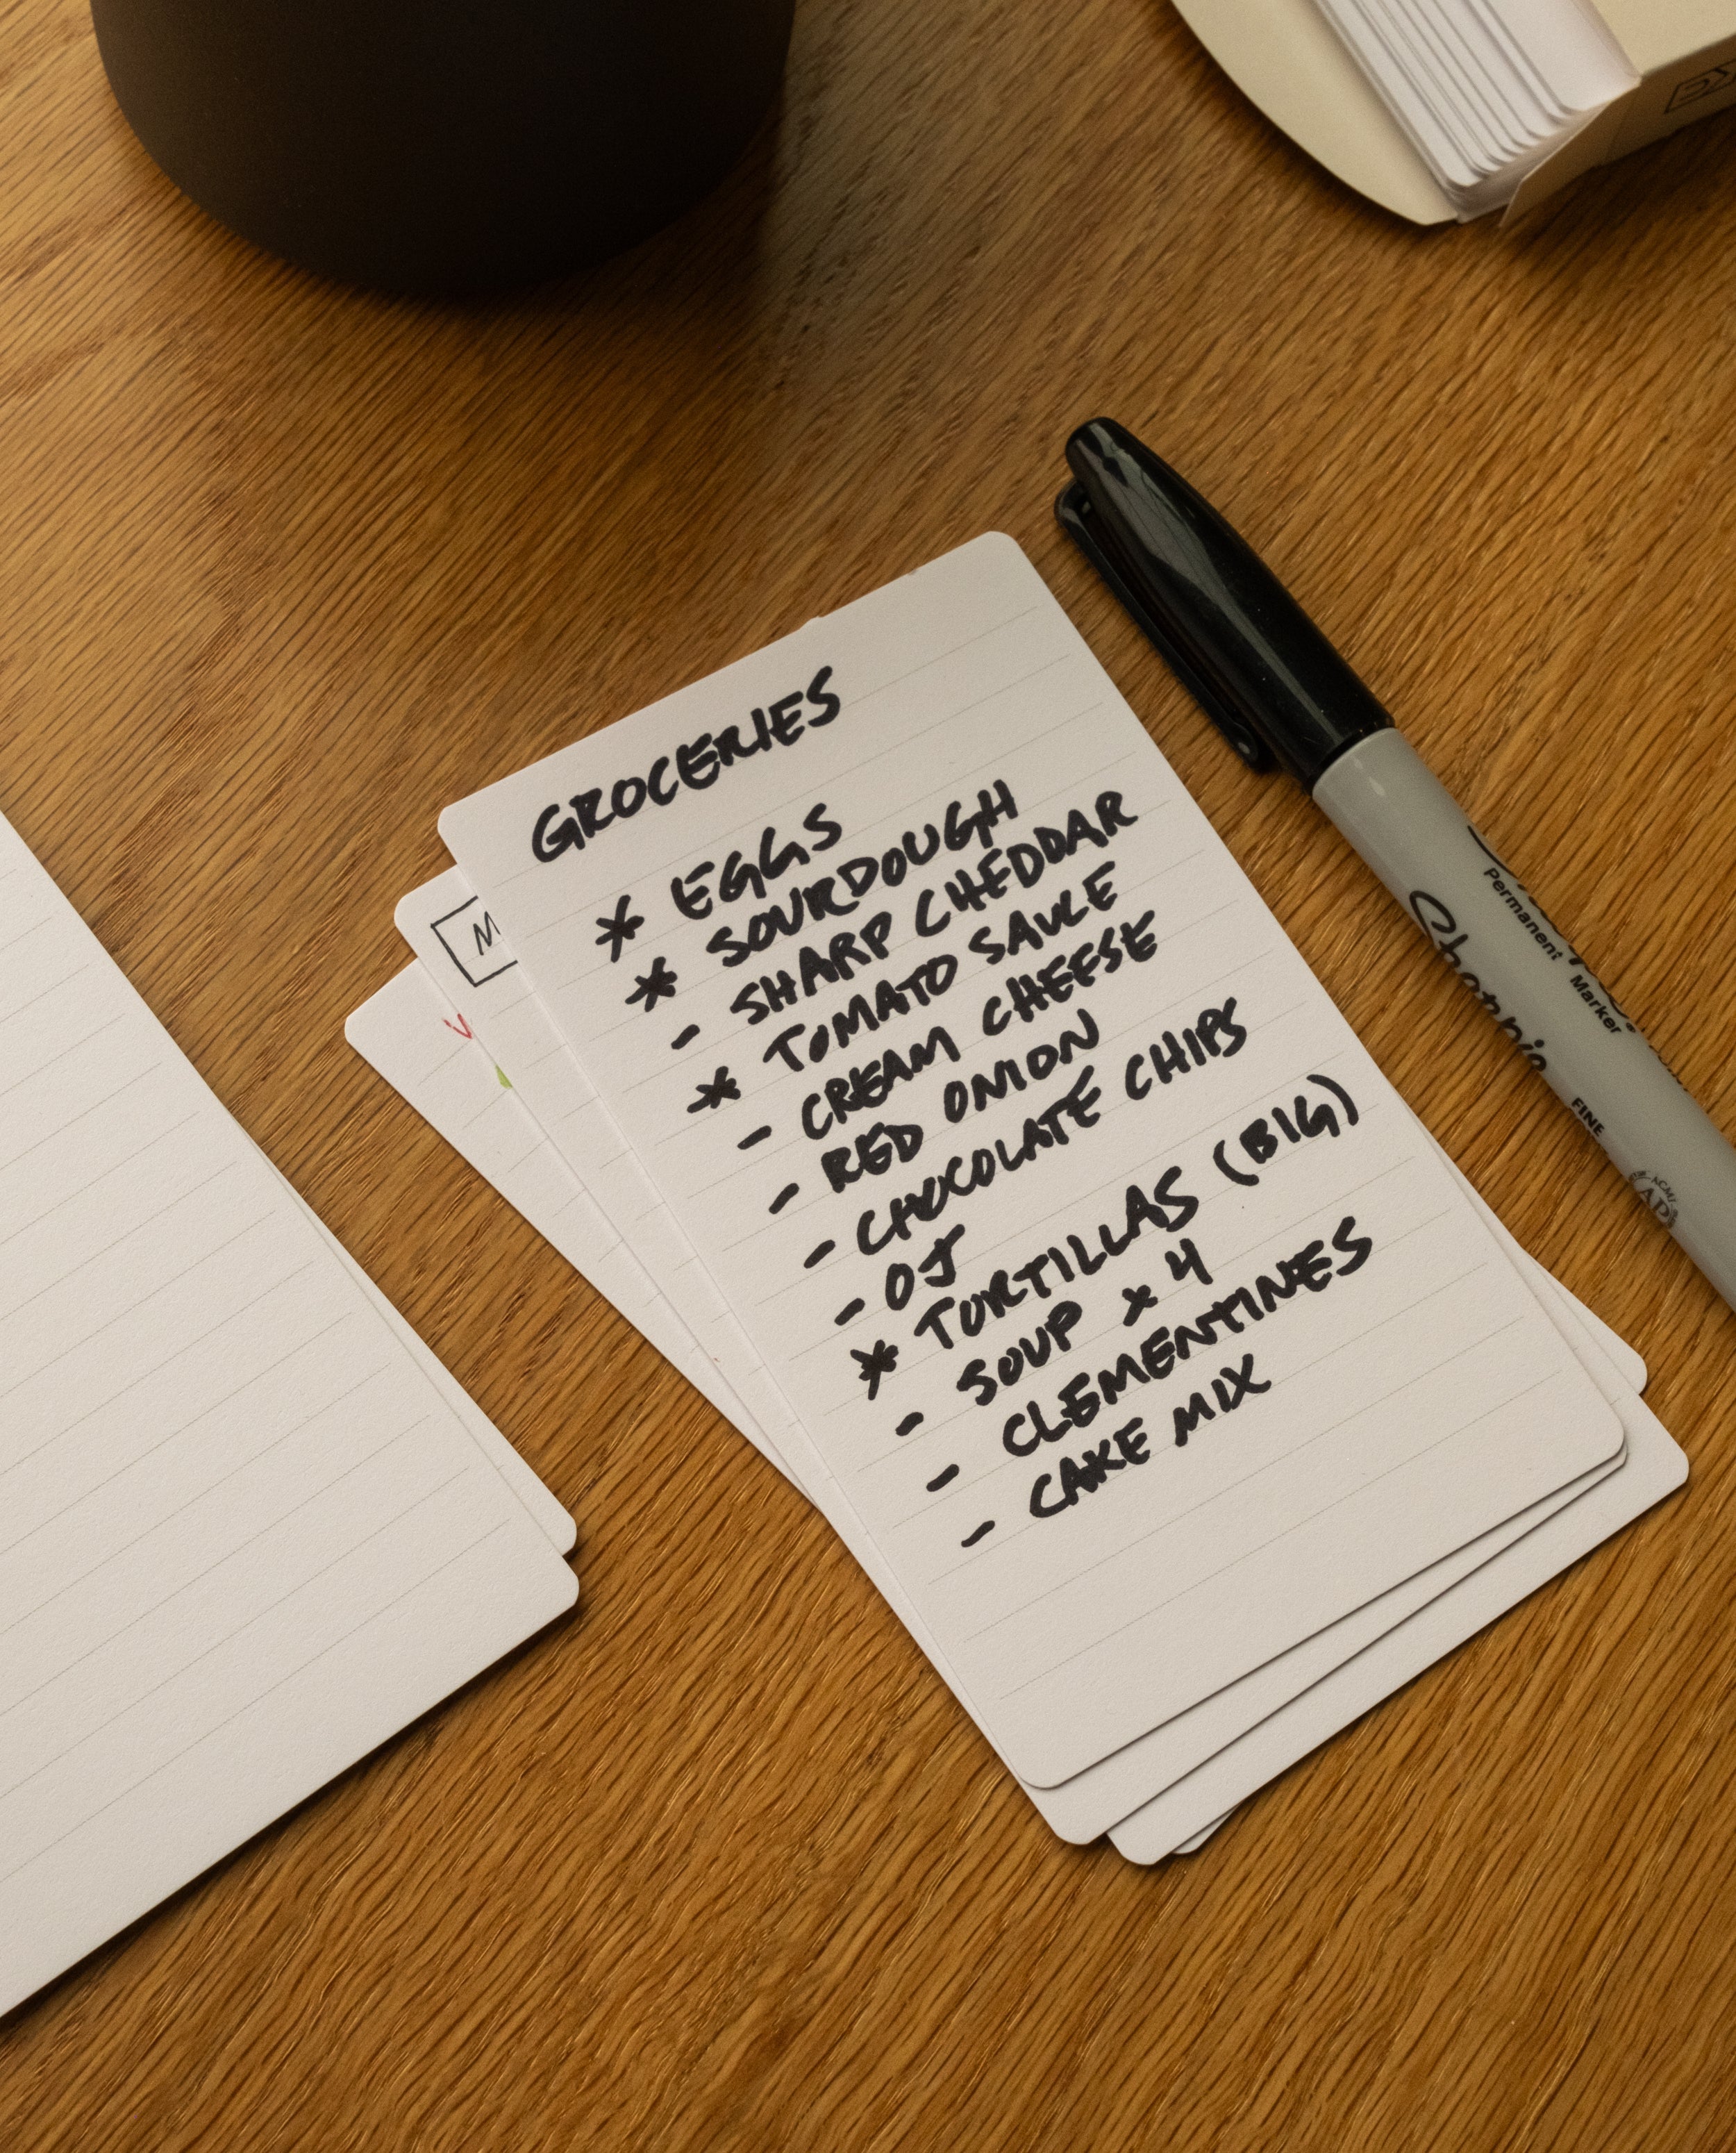 GROCERIES
* EGGS
* SOURDOUGH
- SHARP CHEDDAR
* TOMATO SAUCE
- CREAM CHEESE
- RED ONION
- CHOCOLATE CHIPS
- OJ
* TORTILLAS (BIG)
- SOUP x 4
- CLEMENTINES
- CAKE MIX
M
Sharpie
Permanent Marker
FINE